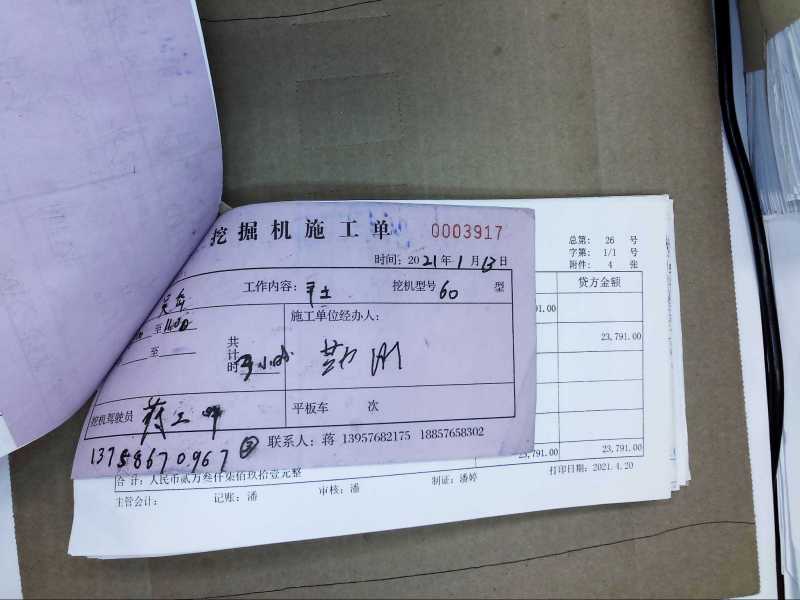 挖掘机施工单 0003917
时间: 2021年1月13日
工作内容: 平土 挖机型号 60 型
至
施工单位经办人:
至
共计时 小时
挖机驾驶员 蒋
平板车 次
13758670967
联系人: 蒋 13957682175 18857658302
总第: 26 号
字第: 1/1 号
附件: 4 张
贷方金额
23,791.00
23,791.00 23,791.00
合计: 人民币贰万叁仟柒佰玖拾壹元整
打印日期: 2021.4.20
主管会计: 记账: 潘 审核: 潘 制证: 潘婷